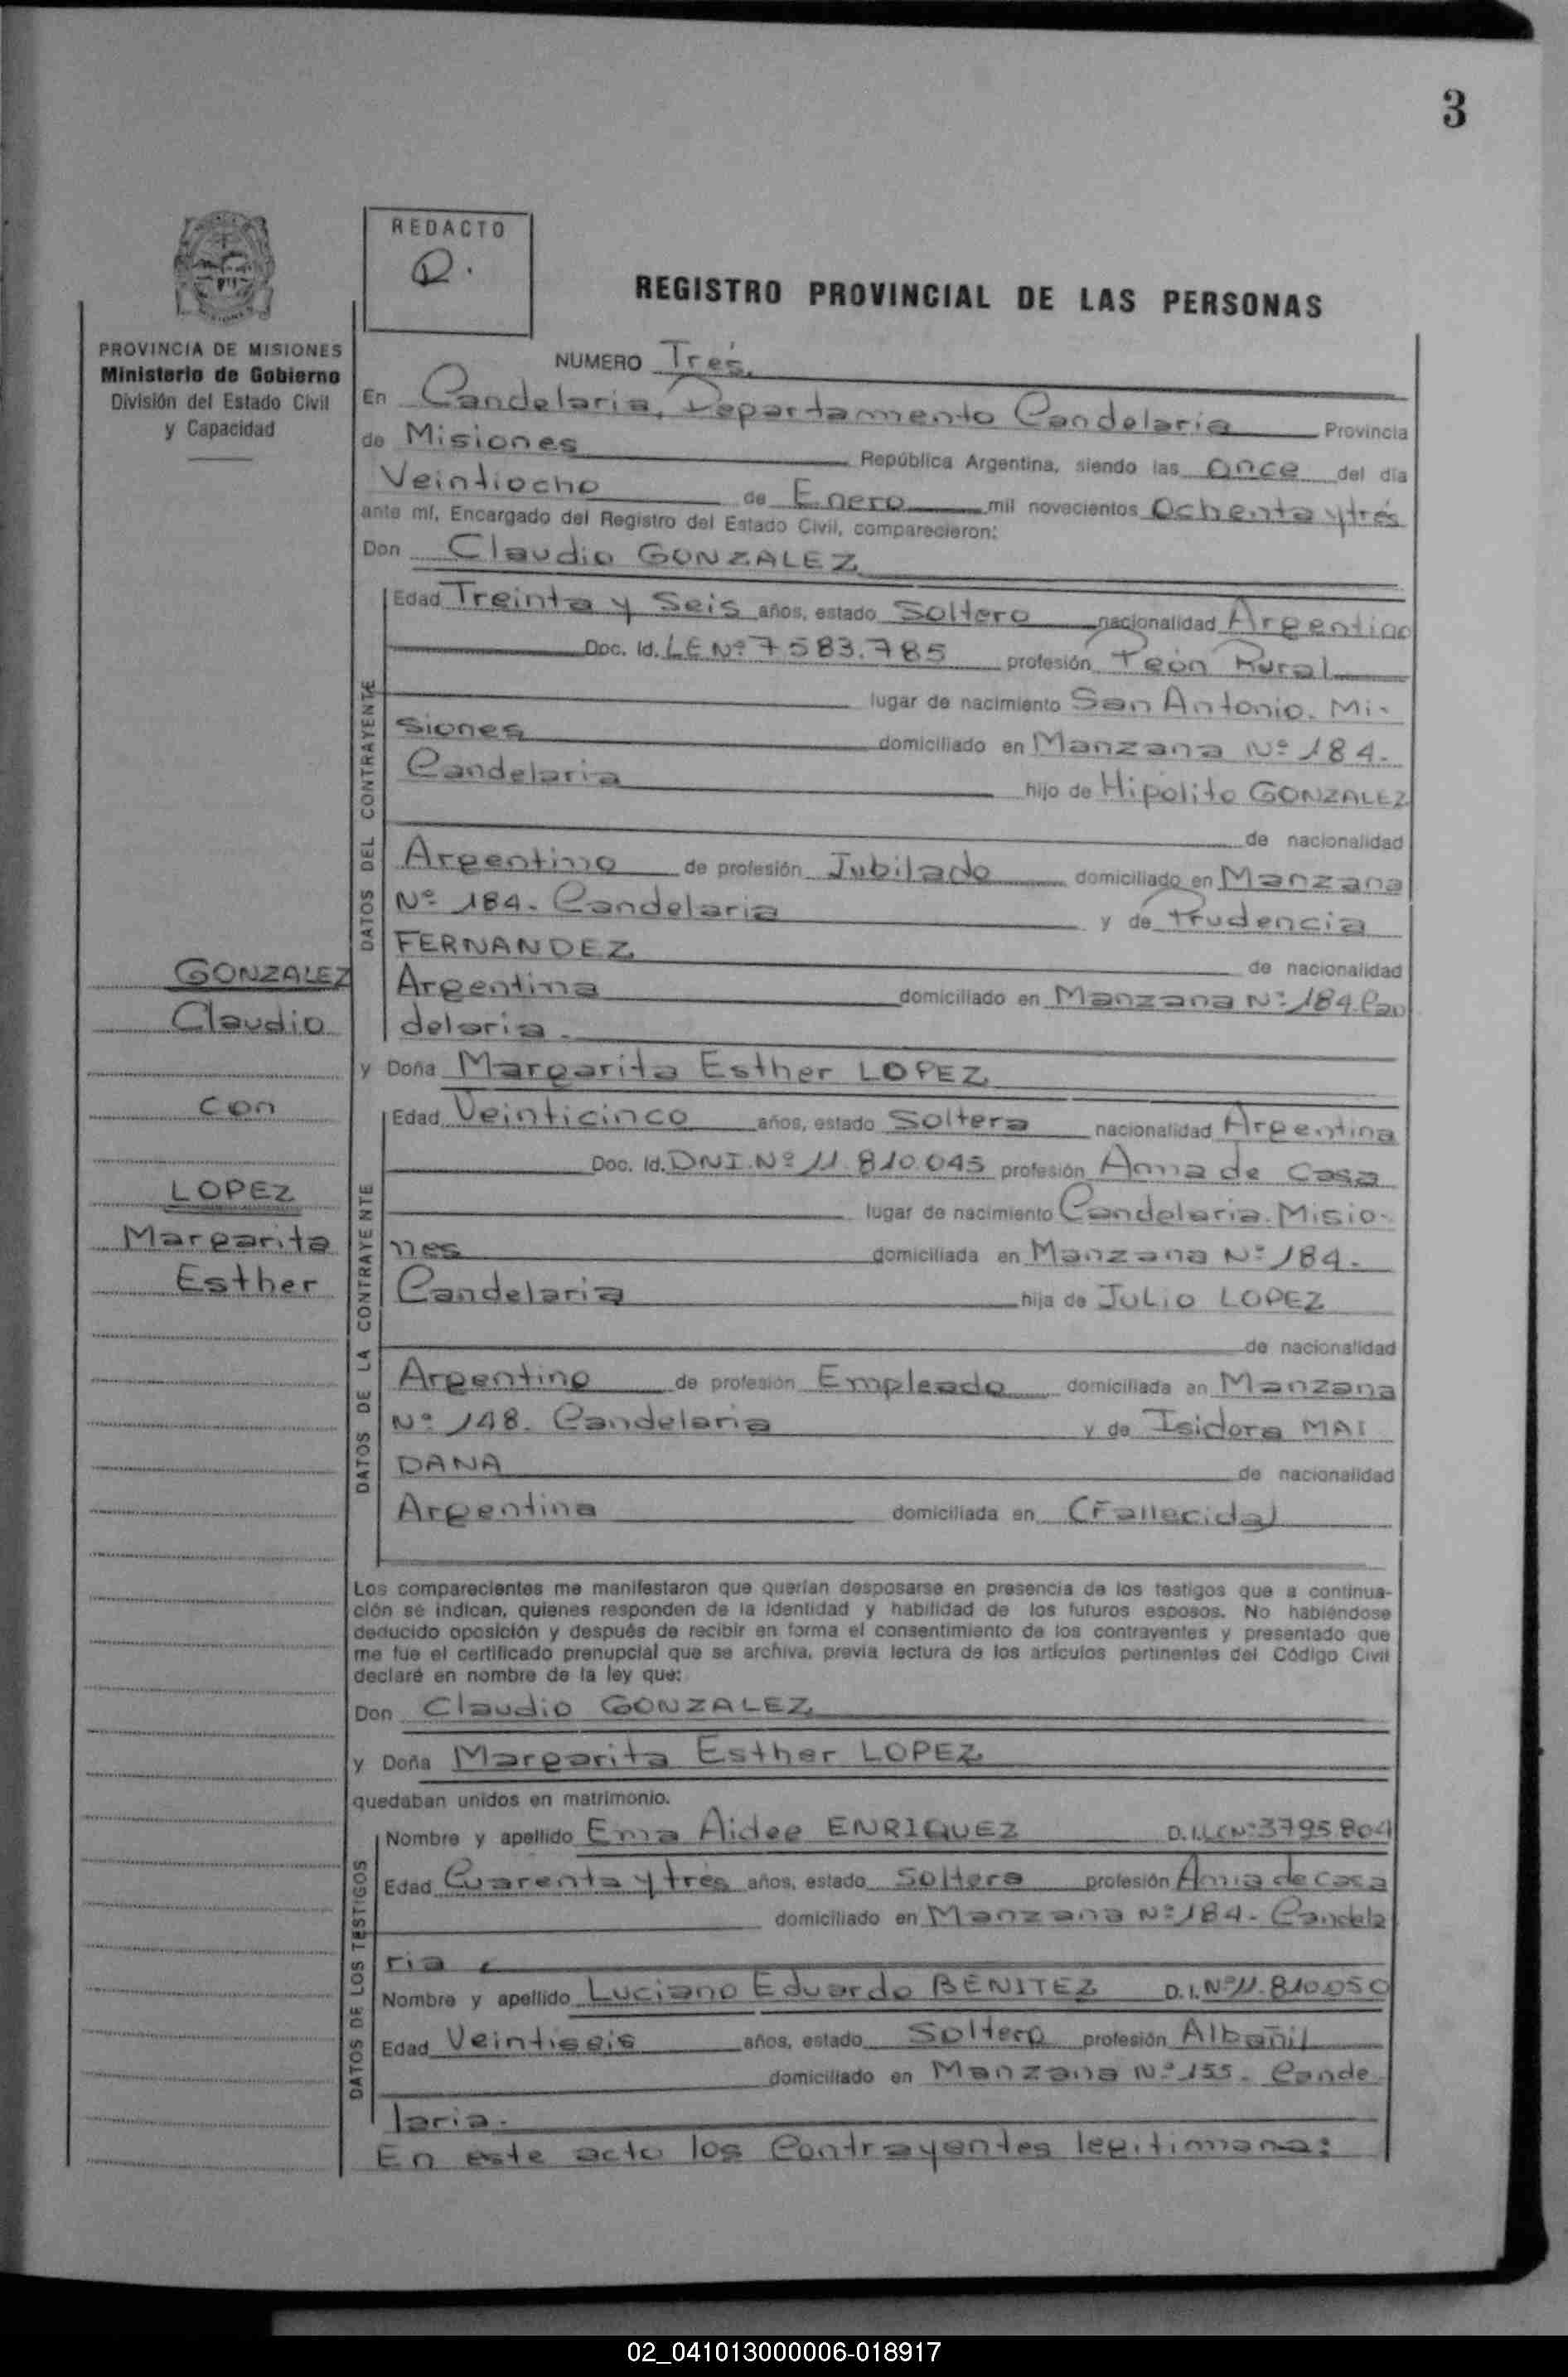 3
REDACTO
REGISTRO PROVINCIAL DE LAS PERSONAS
PROVINCIA DE MISIONES
Ministerio de Gobierno
División del Estado Civil
y Capacidad
NUMERO Tres.
En Candelaria, Departamento Candelaria Provincia
de Misiones República Argentina, siendo las Once del día
Veintiocho de Enero mil novecientos Ochenta y tres
ante mí, Encargado del Registro del Estado Civil, comparecieron:
Don Claudio GONZALEZ
DATOS DEL CONTRAYENTE
Edad Treinta y Seis años, estado Soltero nacionalidad Argentino
Doc. Id. LE Nº 7583.785 profesión Peón Rural
lugar de nacimiento San Antonio. Mi-
siones domiciliado en Manzana Nº 184.
Candelaria hijo de Hipólito GONZALEZ
de nacionalidad
Argentino de profesión Jubilado domiciliado en Manzana
Nº 184. Candelaria y de Prudencia
FERNANDEZ de nacionalidad
Argentina domiciliado en Manzana Nº 184. Can
delaria.
GONZALEZ
Claudio
con
LOPEZ
Margarita
Esther
y Doña Margarita Esther LOPEZ
DATOS DE LA CONTRAYENTE
Edad Veinticinco años, estado Soltera nacionalidad Argentina
Doc. Id. DNI. Nº 11.810.045 profesión Ama de Casa
lugar de nacimiento Candelaria. Misio-
nes domiciliada en Manzana Nº 184.
Candelaria hija de JULIO LOPEZ
de nacionalidad
Argentino de profesión Empleado domiciliada en Manzana
Nº 148. Candelaria y de Isidora MAI
DANA de nacionalidad
Argentina domiciliada en (Fallecida)
Los comparecientes me manifestaron que querían desposarse en presencia de los testigos que a continua-
ción se indican, quienes responden de la identidad y habilidad de los futuros esposos. No habiéndose
deducido oposición y después de recibir en forma el consentimiento de los contrayentes y presentado que
me fue el certificado prenupcial que se archiva, previa lectura de los artículos pertinentes del Código Civil
declaré en nombre de la ley que:
Don Claudio GONZALEZ
y Doña Margarita Esther LOPEZ
quedaban unidos en matrimonio.
DATOS DE LOS TESTIGOS
Nombre y apellido Ema Aidee ENRIQUEZ D.I. LC Nº 3795804
Edad Cuarenta y tres años, estado Soltera profesión Ama de casa
domiciliado en Manzana Nº 184. Candela
ria
Nombre y apellido Luciano Eduardo BENITEZ D.I. Nº 11.810.050
Edad Veintiseis años, estado Soltero profesión Albañil
domiciliado en Manzana Nº 155. Cande
laria.
En este acto los Contrayentes legitiman a:
02_041013000006-018917